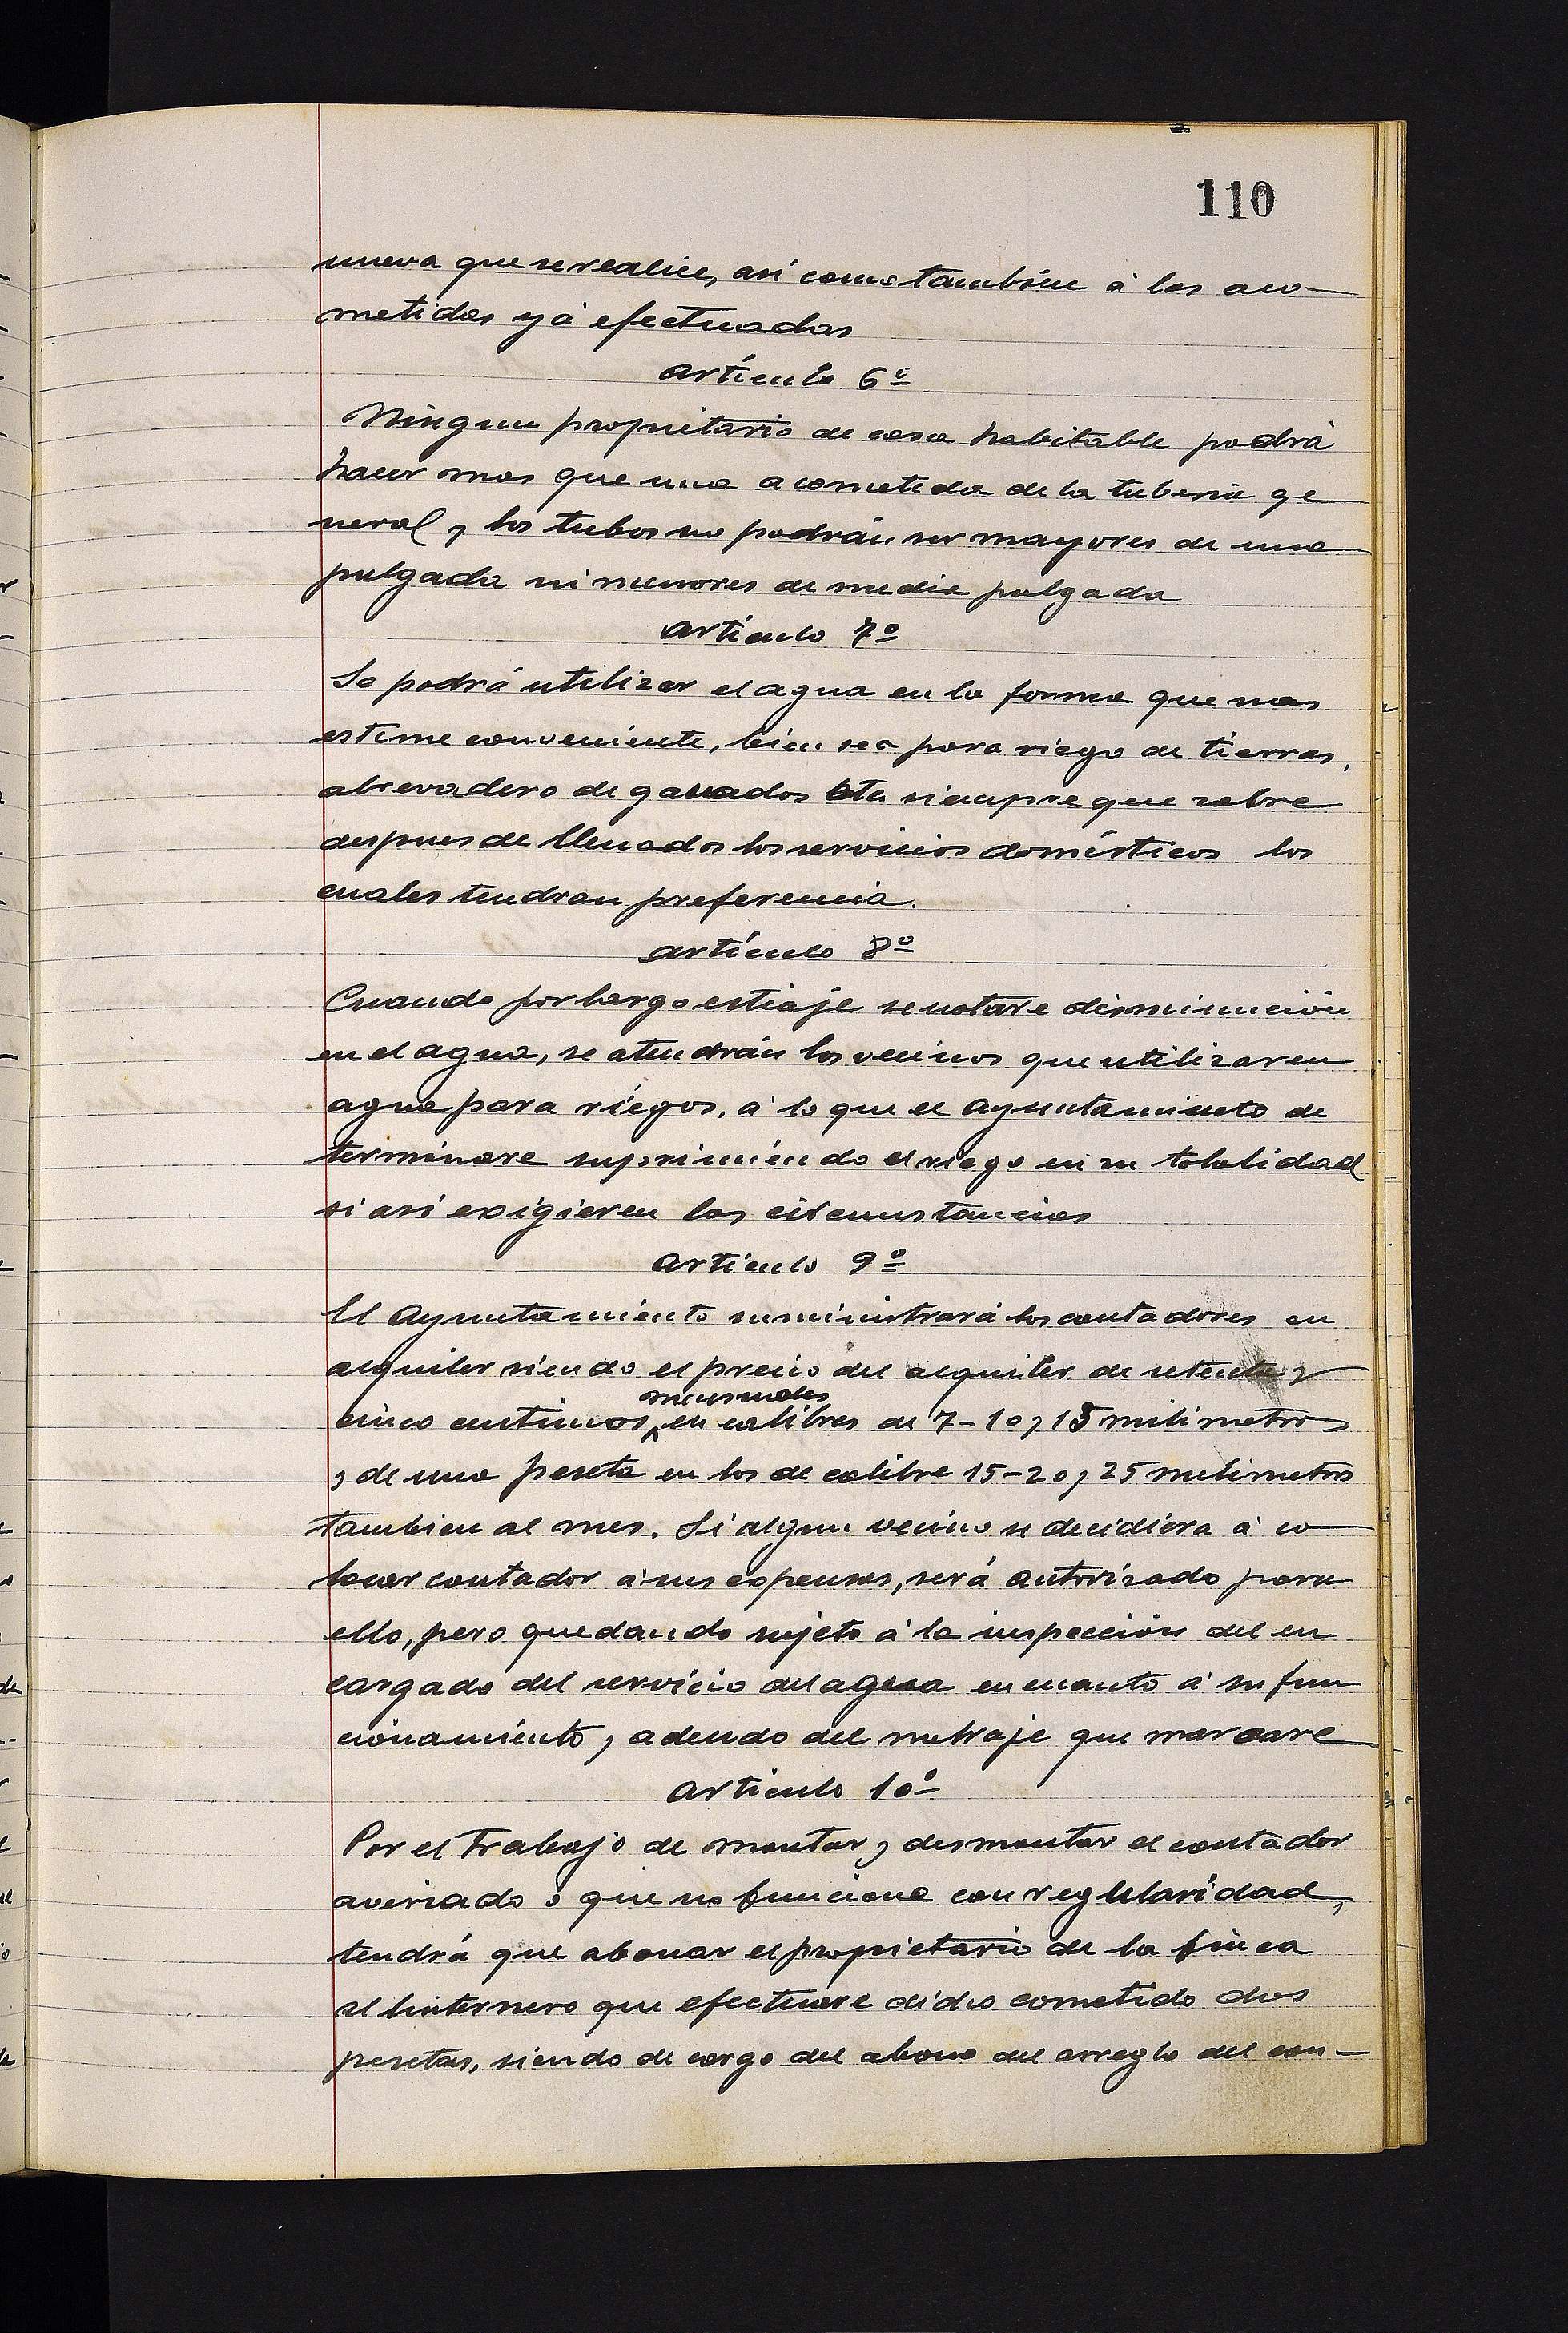 110
nueva que se realice, asi como tambien à las aco-
metidas yà efectuadas
Artículo 6º
Ningun propietario de casa habitable podrá
hacer mas que una acometida de la tuberia ge
neral y los tubos no podrán ser mayores de una
pulgada ni menores de media pulgada
Artículo 7º
Se podrá utilizar el agua en la forma que mas
estime conveniente, bien sea para riego de tierras,
abrevadero de ganados etc siempre que sobre
despues de llenados los servicios domésticos los
cuales tendran preferencia.
Artículo 8º
Cuando por largo estiaje se notare disminución
en el agua, se atendrán los vecinos que utilizaren
agua para riegos, à lo que el Ayuntamiento de
terminare suprimiéndo el riego en su totalidad
si asi exigieren las circunstancias
Artículo 9º
El Ayuntamiento suministrará los contadores en
alquiler siendo el precio del alquiler de setenta y
mensuales
cinco centimos, en calibres de 7-10 y 13 milimetros
y de una peseta en los de calibre 15-20 y 25 milimetros
tambien al mes. Si algun vecino se decidiera à co
locar contador à sus expensas, será autorizado para
ello, pero quedando sujeto à la inspección del en
cargado del servicio del agua en cuanto à su fun
cionamiento y adeudo del metraje que marcare
Artículo 10º
Por el trabajo de montar y desmontar el contador
averiado o que no funcione con regularidad,
tendrá que abonar el propietario de la finca
al linternero que efectuare dicho cometido dos
pesetas, siendo de cargo del abono del arreglo del con-